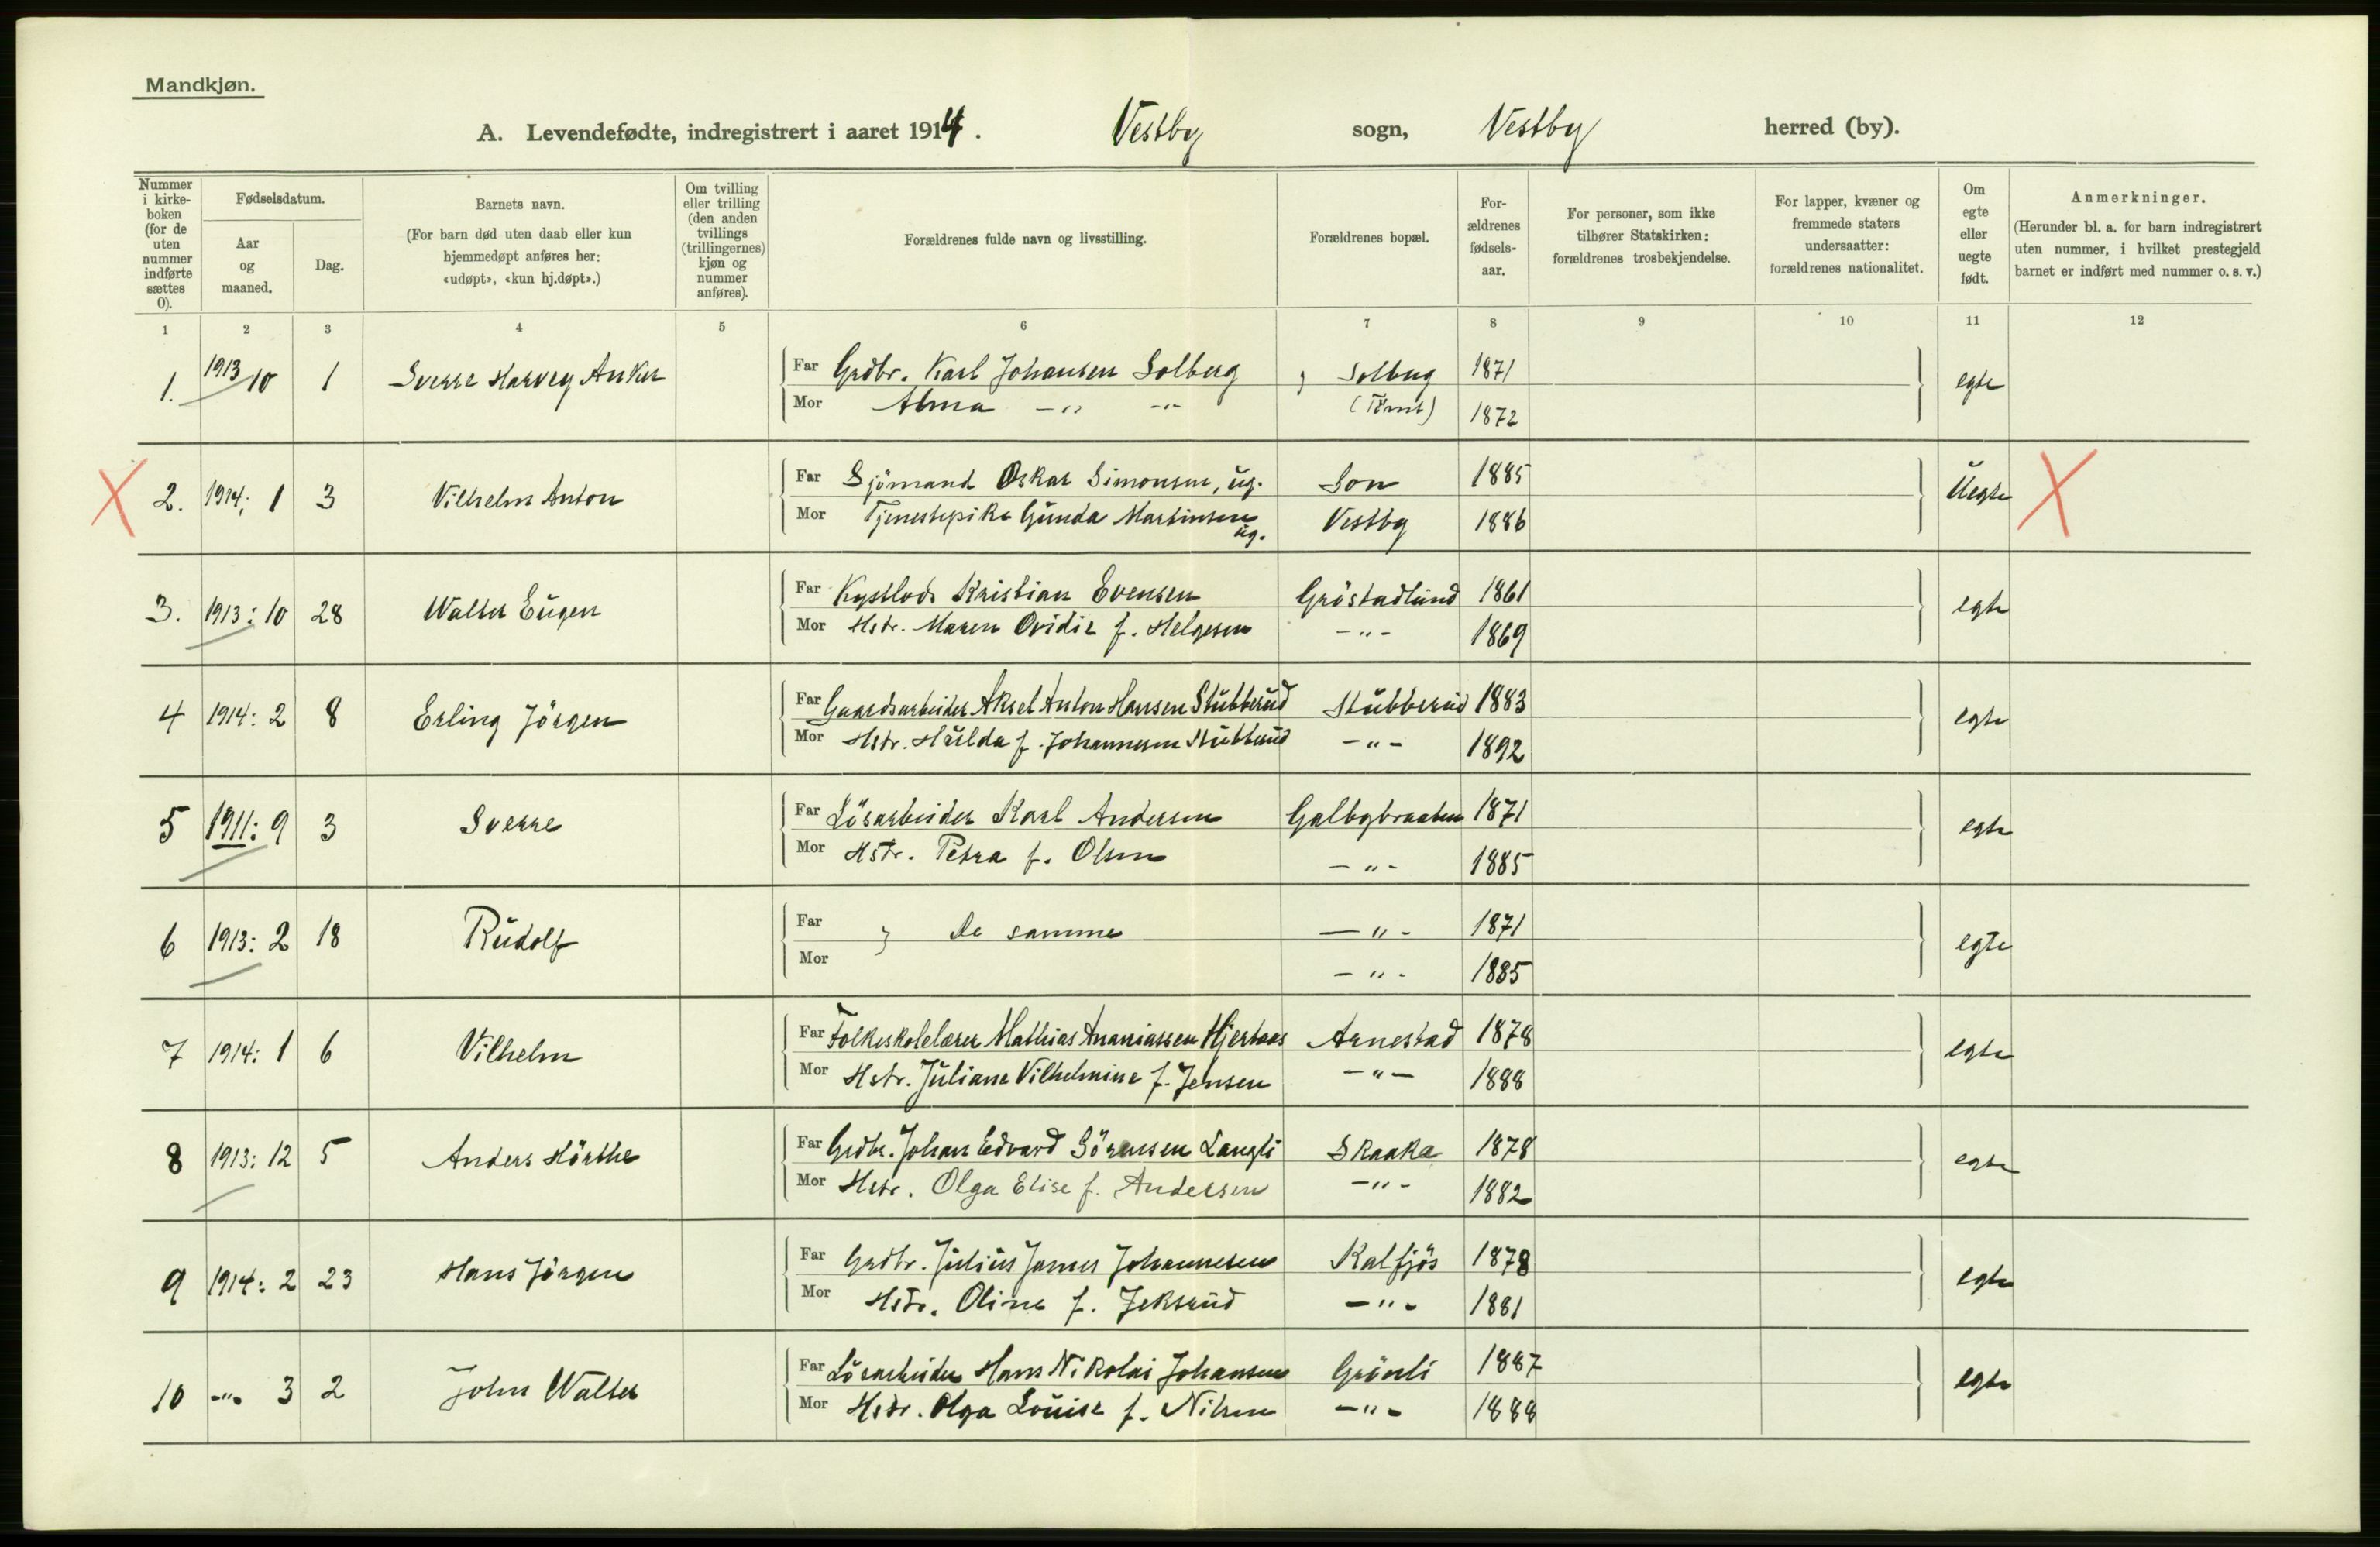 Mandkjøn.
A. Levendefødte, indregistrert i aaret 1914. Vestby sogn, Vestby herred (by).
Nummer i kirke-boken (for de uten nummer indførte sættes 0).
Fødselsdatum.
Aar og maaned.
Dag.
Barnets navn.
(For barn død uten daab eller kun hjemmedøpt anføres her: «udøpt», «kun hj.døpt».)
Om tvilling eller trilling (den anden tvillings (trillingernes) kjøn og nummer anføres).
Forældrenes fulde navn og livsstilling.
Forældrenes bopæl.
For-ældrenes fødsels-aar.
For personer, som ikke tilhører Statskirken: forældrenes trosbekjendelse.
For lapper, kvæner og fremmede staters undersaatter: forældrenes nationalitet.
Om egte eller uegte født.
Anmerkninger.
(Herunder bl. a. for barn indregistrert uten nummer, i hvilket prestegjeld barnet er indført med nummer o. s. v.)
1 2 3 4 5 6 7 8 9 10 11 12
1. 1913 10 1 Sverre Harvey Anker Far Grdbr. Karl Johansen Solberg Solberg 1871 egte
Mor Alma -"- -"- 1872
2. 1914: 1 3 Vilhelm Anton Far Sjömand Oskar Simonsen, ug. Son 1885 Uegte
Mor Tjenestepike Gunda Martinsen ug. Vestby 1886
3. 1913: 10 28 Walter Eugen Far Kystlods Kristian Evensen Gröstadlund 1861 egte
Mor Hstr. Maren Ovidie f. Helgesen -"- 1869
4 1914: 2 8 Erling Jörgen Far Gaardsarbeider Aksel Anton Hansen Stubberud Stubberud 1883 egte
Mor Hstr. Hulda f. Johannesen Stubberud -"- 1892
5 1911: 9 3 Sverre Far Lösarbeider Karl Andersen Galbybraaten 1871 egte
Mor Hstr. Petra f. Olsen -"- 1885
6 1913: 2 18 Rudolf Far de samme -"- 1871 egte
Mor -"- 1885
7 1914: 1 6 Vilhelm Far Folkeskolelærer Mathias Ananiassen Hjertaas Arnestad 1878 egte
Mor Hstr. Juliane Vilhelmine f. Jensen -"- 1888
8 1913: 12 5 Anders Hörthe Far Grdbr. Johan Edvard Sörensen Langli Skaaka 1878 egte
Mor Hstr. Olga Elise f. Andersen -"- 1882
9 1914: 2 23 Hans Jörgen Far Grdbr. Julius James Johannesen Kalfjös 1878 egte
Mor Hstr. Oline f. Jeksrud -"- 1881
10 -"- 3 2 John Walter Far Lösarbeider Hans Nikolai Johansen Grönli 1887 egte
Mor Hstr. Olga Louise f. Nilsen -"- 1888